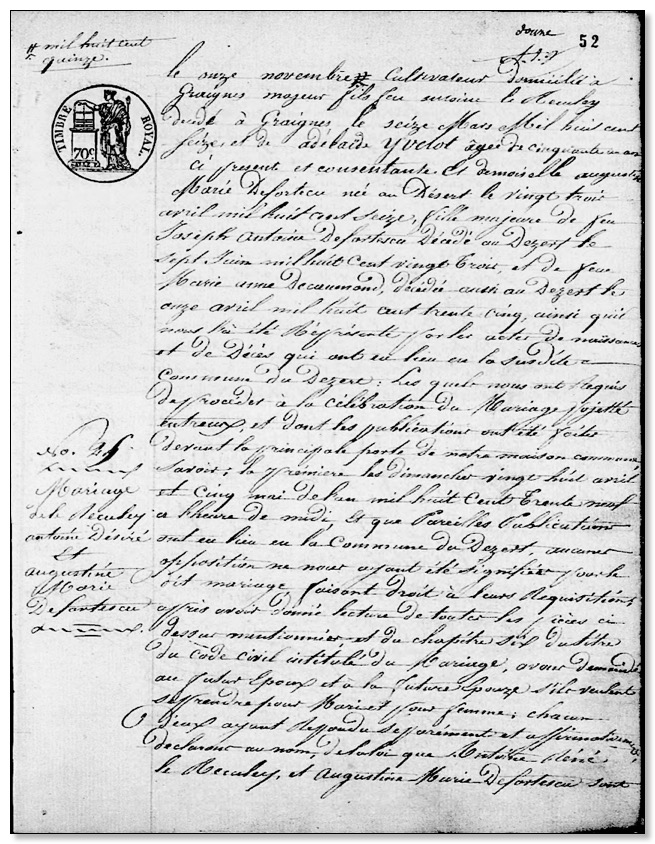 52
# mil huit cent
quinze.
TIMBRE ROYAL.
70c
le onze novembre # Cultivateur domicilié à
Graignes majeur fils feu antoine le Reculey
décédé à Graignes le seize Mars Mil huit cent
seize et de adélaïde Yvetot âgée de cinquante un ans
ci présente et consentante Et demoiselle augustine
Marie Defortescu né au Désert le vingt trois
avril mil huit cent seize, fille majeure de feu
Joseph Antoine Defortescu Décédé au Dezert le
sept Juin mil huit Cent vingt Trois, et de feue
Marie anne Decaumond, décédée aussi au Dezert le
onze avril mil huit cent trente cinq, ainsi qu'il
nous à été Réprésenté par les actes de naissance
et de Décès qui ont eu lieu en la susdite
commune du Dezert : Les quels nous ont Requis
de procéder à la célébration du Mariage projetté
entreeux, et dont les publications ont été faites
devant la principale porte de notre maison commune
savoir ; la première les dimanches vingt huit avril
et Cinq mai de l'an mil huit Cent Trente neuf
a l'heure de midi, Et que Pareilles Publications
ont eu lieu en la Commune du Dezert, aucune
opposition ne nous ayant été signifiée pour le
dit mariage, faisant droit à leurs Requisitions,
après avoir donné lecture de toutes les pièces ci
dessus mentionnées et du chapitre six du titre
du code civil intitulé du Mariage, avons demandé
au futur Epoux et à la future Epouze s'ils veulent
se prendre pour Mari et pour femme ; chacun
d'eux ayant Répondu séparément et affirmativement
declarons au nom de la loi que Antoine Désiré
le Reculey, et Augustine Marie Defortescu sont
No. 25.
Mariage
de le Reculey
antoine Désiré
Et
augustine
Marie
Defortescu